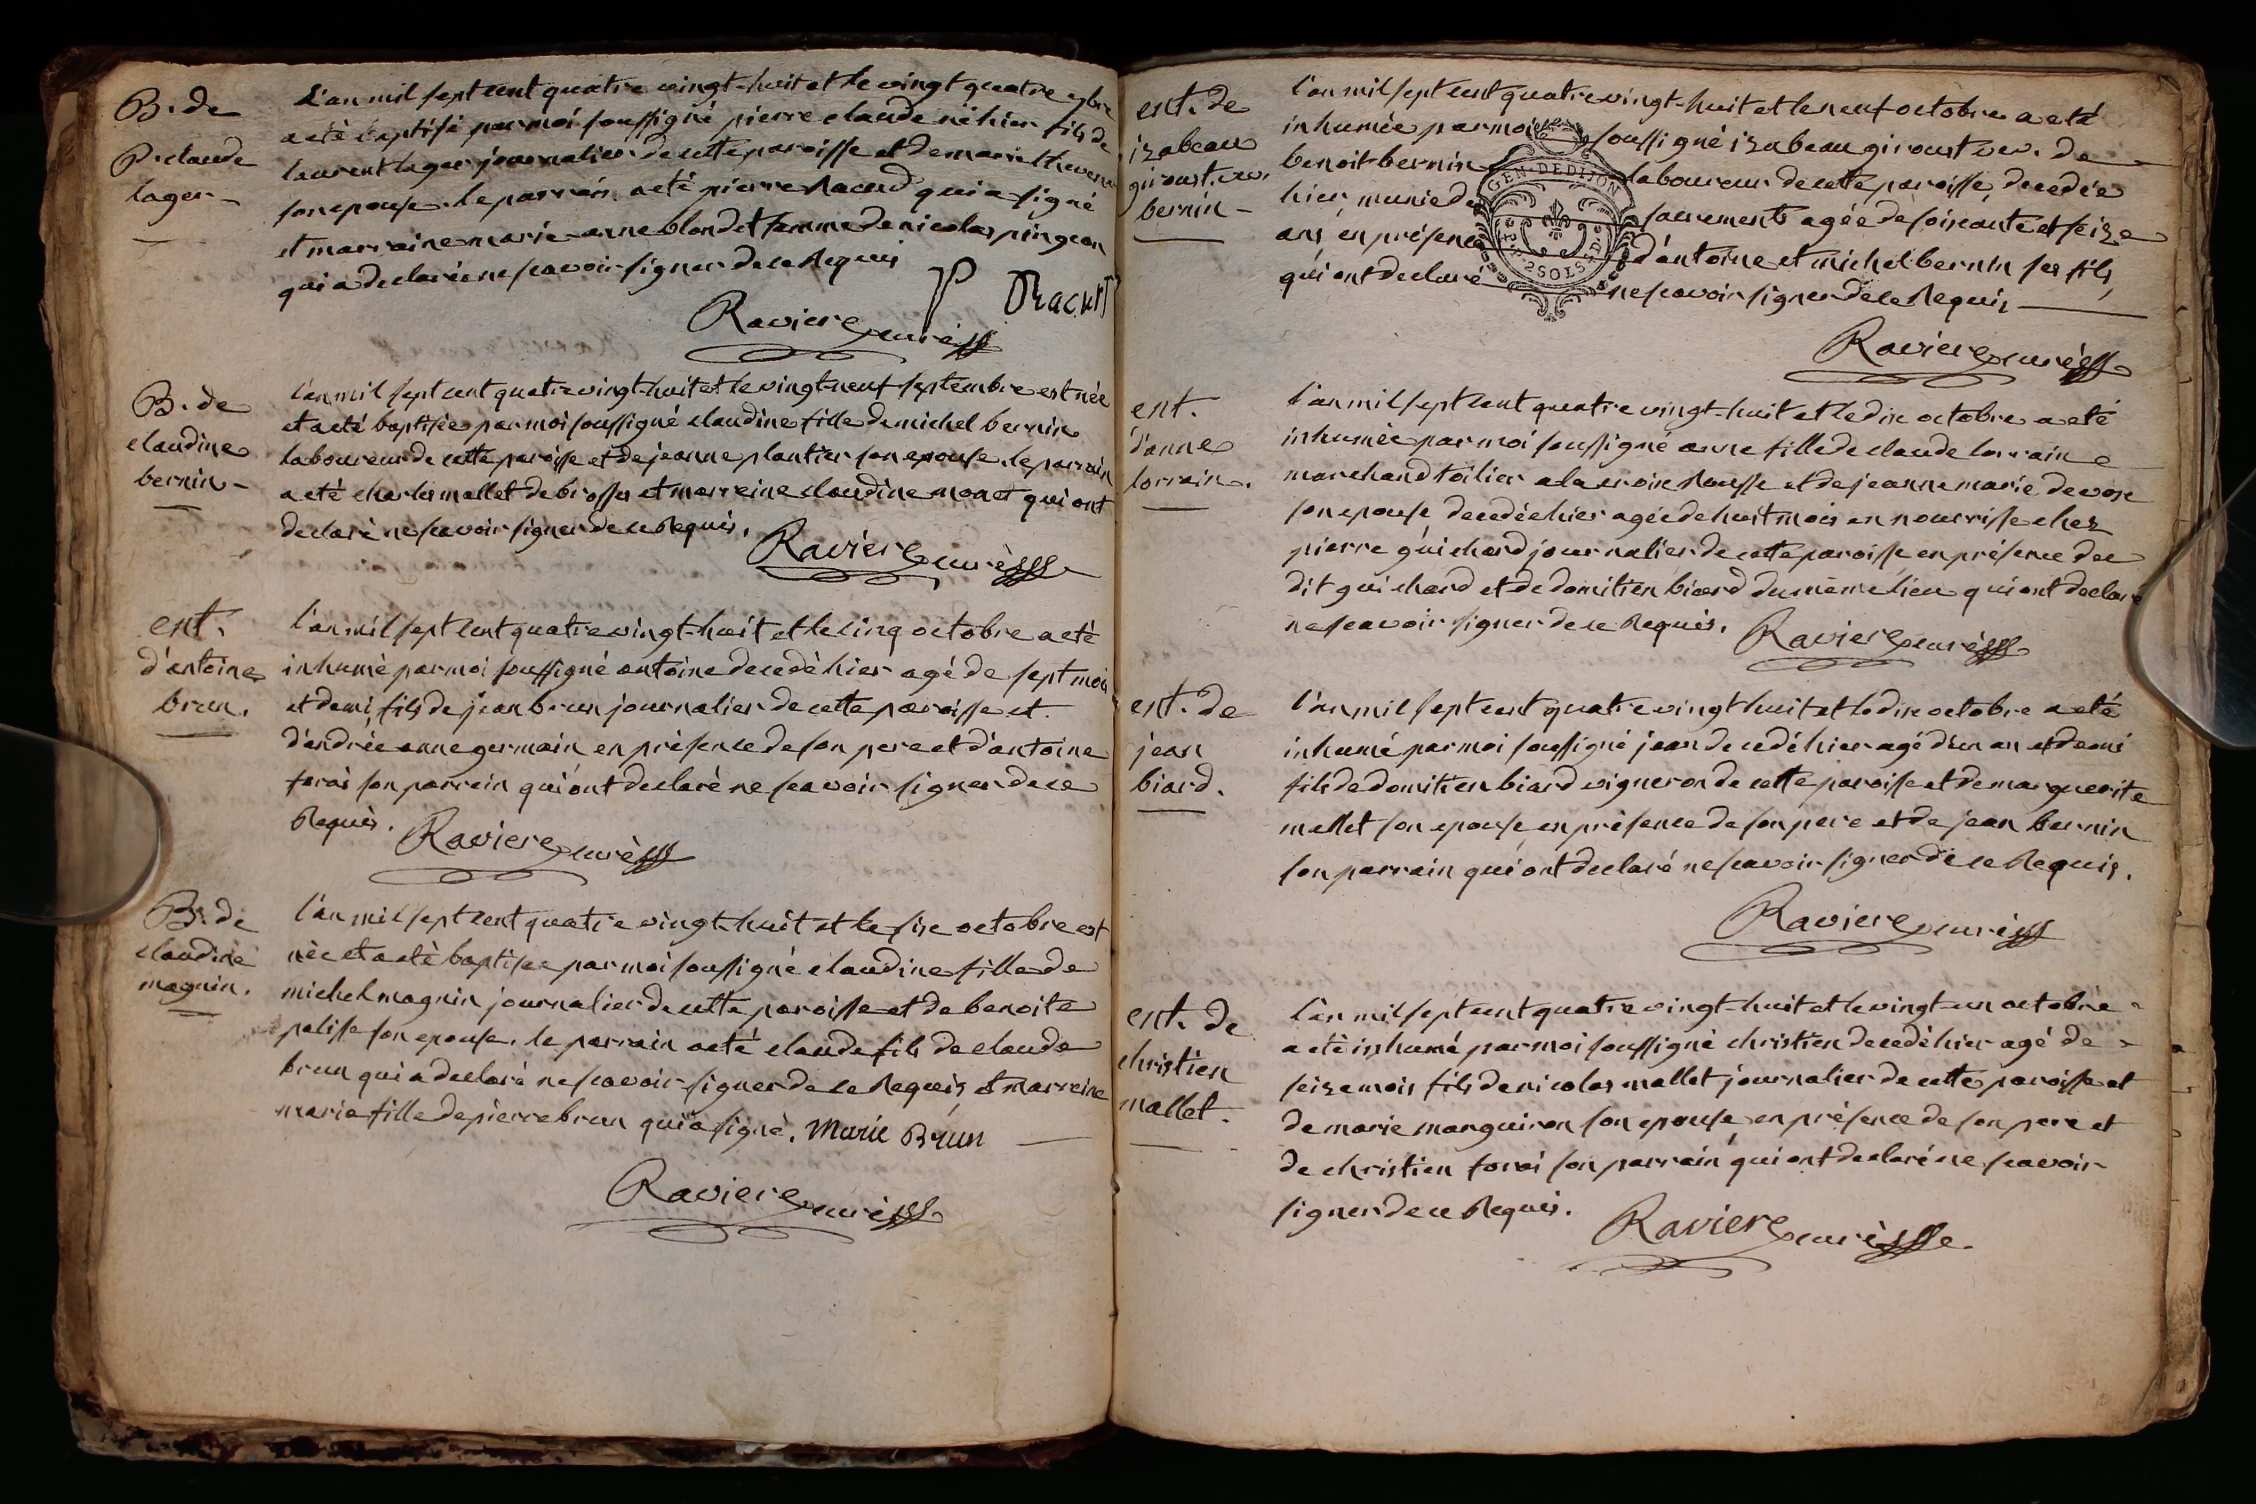 B. de
P. claude
lager
L'an mil sept cent quatre vingt-huit et le vingt quatre 7bre
a eté baptisé par moi soussigné pierre claude né hier fils de
laurent lager journalier de cette paroisse et de marie thevenin
son epouse. le parrain a eté pierre Racud qui a signé
et marraine marie-anne blondet femme de nicolas pingeon
qui a declarée ne scavoir signer de ce Requis
P Racud
Raviere curé
B. de
claudine
bernin
l'an mil sept cent quatre vingt-huit et le vingt-neuf septembre est née
et a eté baptisée par moi soussigné claudine fille de michel bernin
laboureur de cette paroisse et de jeanne plantier son epouse. le parrain
a eté charles mallet de brosses et marreine claudine monet qui ont
declaré ne scavoir signer de ce Requis.
Raviere curé
ent.
d'antoine
brun.
l'an mil sept cent quatre vingt-huit et le cinq octobre a eté
inhumé par moi soussigné antoine decedé hier agé de sept mois
et demi fils de jean brun journalier de cette paroisse et
d'andrée anne germain en présence de son pere et d'antoine
forai son parrein qui ont declaré ne scavoir signer de ce
Requis.
Raviere curé
B. de
claudine
magnin.
l'an mil sept cent quatre vingt-huit et le six octobre est
née et a eté baptisée par moi soussigné claudine fille de
michel magnin journalier de cette paroisse et de benoite
palisse son epouse. le parrain a eté claude fils de claude
brun qui a declaré ne scavoir signer de ce Requis et marreine
marie fille de pierre brun qui a signé. Marie Brun
Raviere curé
ent. de
izabeau
giroust. vev.
bernin
l'an mil sept cent quatre vingt-huit et le neuf octobre a eté
inhumée par moi soussigné izabeau giroust vev. de
benoit bernin laboureur de cette paroisse, decedée
hier, munie des sacrements agée de soixante et seize
ans, en présence d'antoine et michel bernin ses fils
qui ont declaré ne scavoir signer de ce Requis
GEN. DE DIJON
Raviere curé
ent.
d'anne
lorrain.
l'an mil sept cent quatre vingt-huit et le dix octobre a eté
inhumée par moi soussigné anne fille de claude lorrain
marchand toilier a la croix Rousse et de jeanne marie devose
son epouse decedée hier agée de huit mois en nourrisse chez
pierre guichard journalier de cette paroisse en présence du
dit guichard et de domitien biard du même lieu qui ont declaré
ne scavoir signer de ce Requis.
Raviere curé
ent. de
jean
biard.
l'an mil sept cent quatre vingt huit et le dix octobre a eté
inhumé par moi soussigné jean decedé hier agé d'un an et demi
fils de domitien biard vigneron de cette paroisse et de marguerite
mallet son epouse en présence de son pere et de jean bernin
son parrain qui ont declaré ne scavoir signer de ce Requis.
Raviere curé
ent. de
christien
mallet.
l'an mil sept cent quatre vingt-huit et le vingt-un octobre
a eté inhumé par moi soussigné christien decedé hier agé de
seize mois fils de nicolas mallet journalier de cette paroisse et
de marie manguiron son epouse en présence de son pere et
de christien forai son parrain qui ont declaré ne scavoir
signer de ce Requis.
Raviere curé